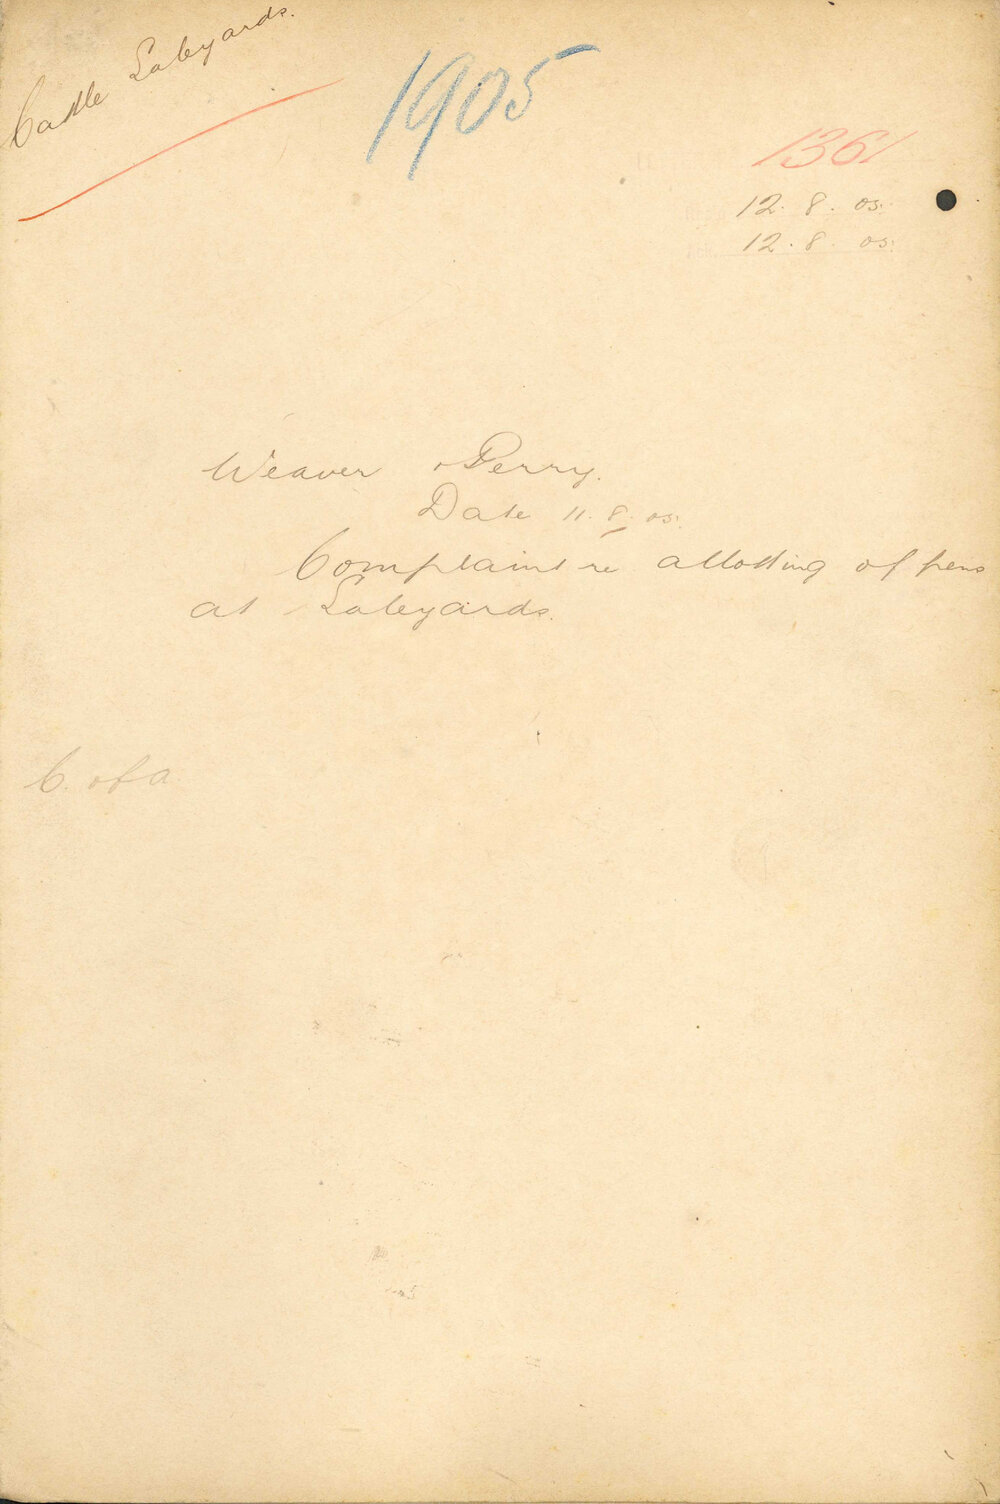 Cattle Saleyards.
1905
1361
12. 8. 05.
12. 8. 05.
Weaver & Perry.
Date 11. 8. 05.
Complaint re allotting of pens
at Saleyards.
C. of a